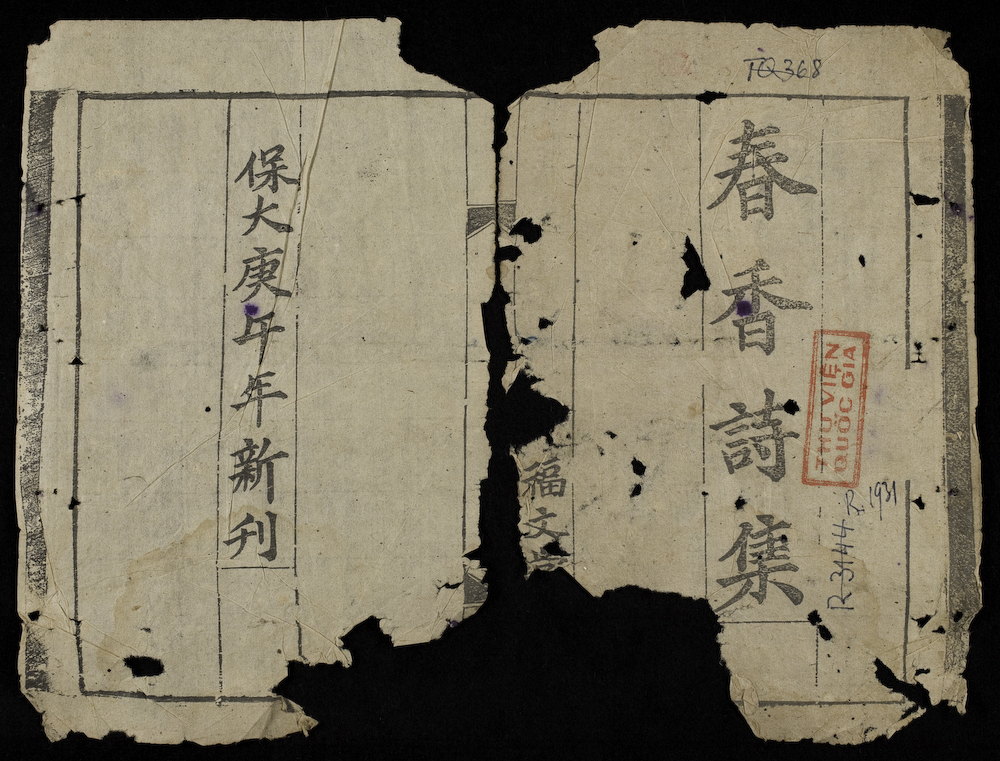 TQ 368
春香詩集
THƯ VIỆN
QUỐC GIA
R.3144
R. 1931
福文
保大庚午年新刊